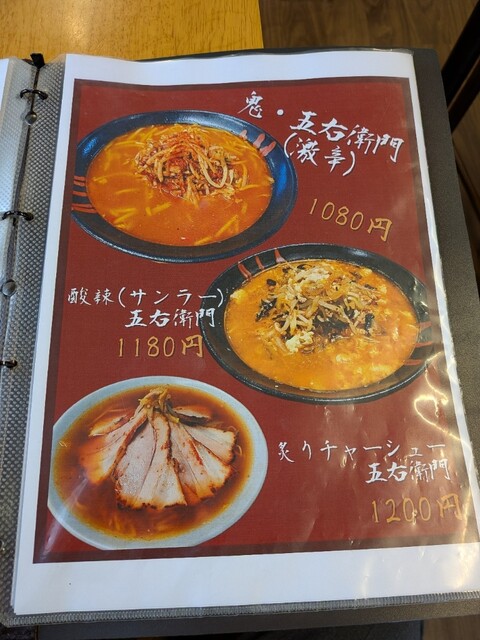 鬼・五右衛門
(激辛)
1080円
酸辣(サンラー)
五右衛門
1180円
炙りチャーシュー
五右衛門
1200円